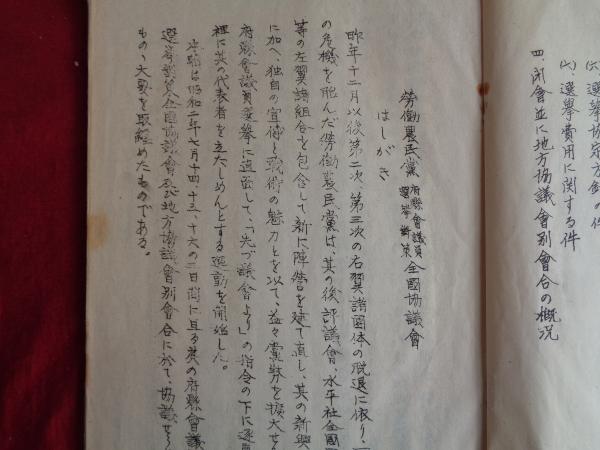 (六) 選擧費用に関する件
四、閉會並に地方協議會別會合の概況
勞働農民黨 府縣會議員選擧對策 全國協議會
はしがき
昨年十二月以後第二次、第三次の右翼諸團体の脱退に依り、一
の危機を胎んだ勞働農民黨は、其の後評議會、水平社全國
等の左翼諸組合を包含して新に陣営を建て直し、其の新興
に加へ、独自の宣傳と戦術の魅力とを以て、益々黨勢を擴大せ
府縣會議員選挙に直面して、「先づ議會より」の指令の下に逐
裡に其の代表者を立たしめんとする運動を開始した。
本輯は昭和二年七月十四、十五、十六の三日間に亘る其の府縣會議
選挙對策全國協議會及地方協議會別會合に於て、協議せら
もの丶大要を取纏めたものである。